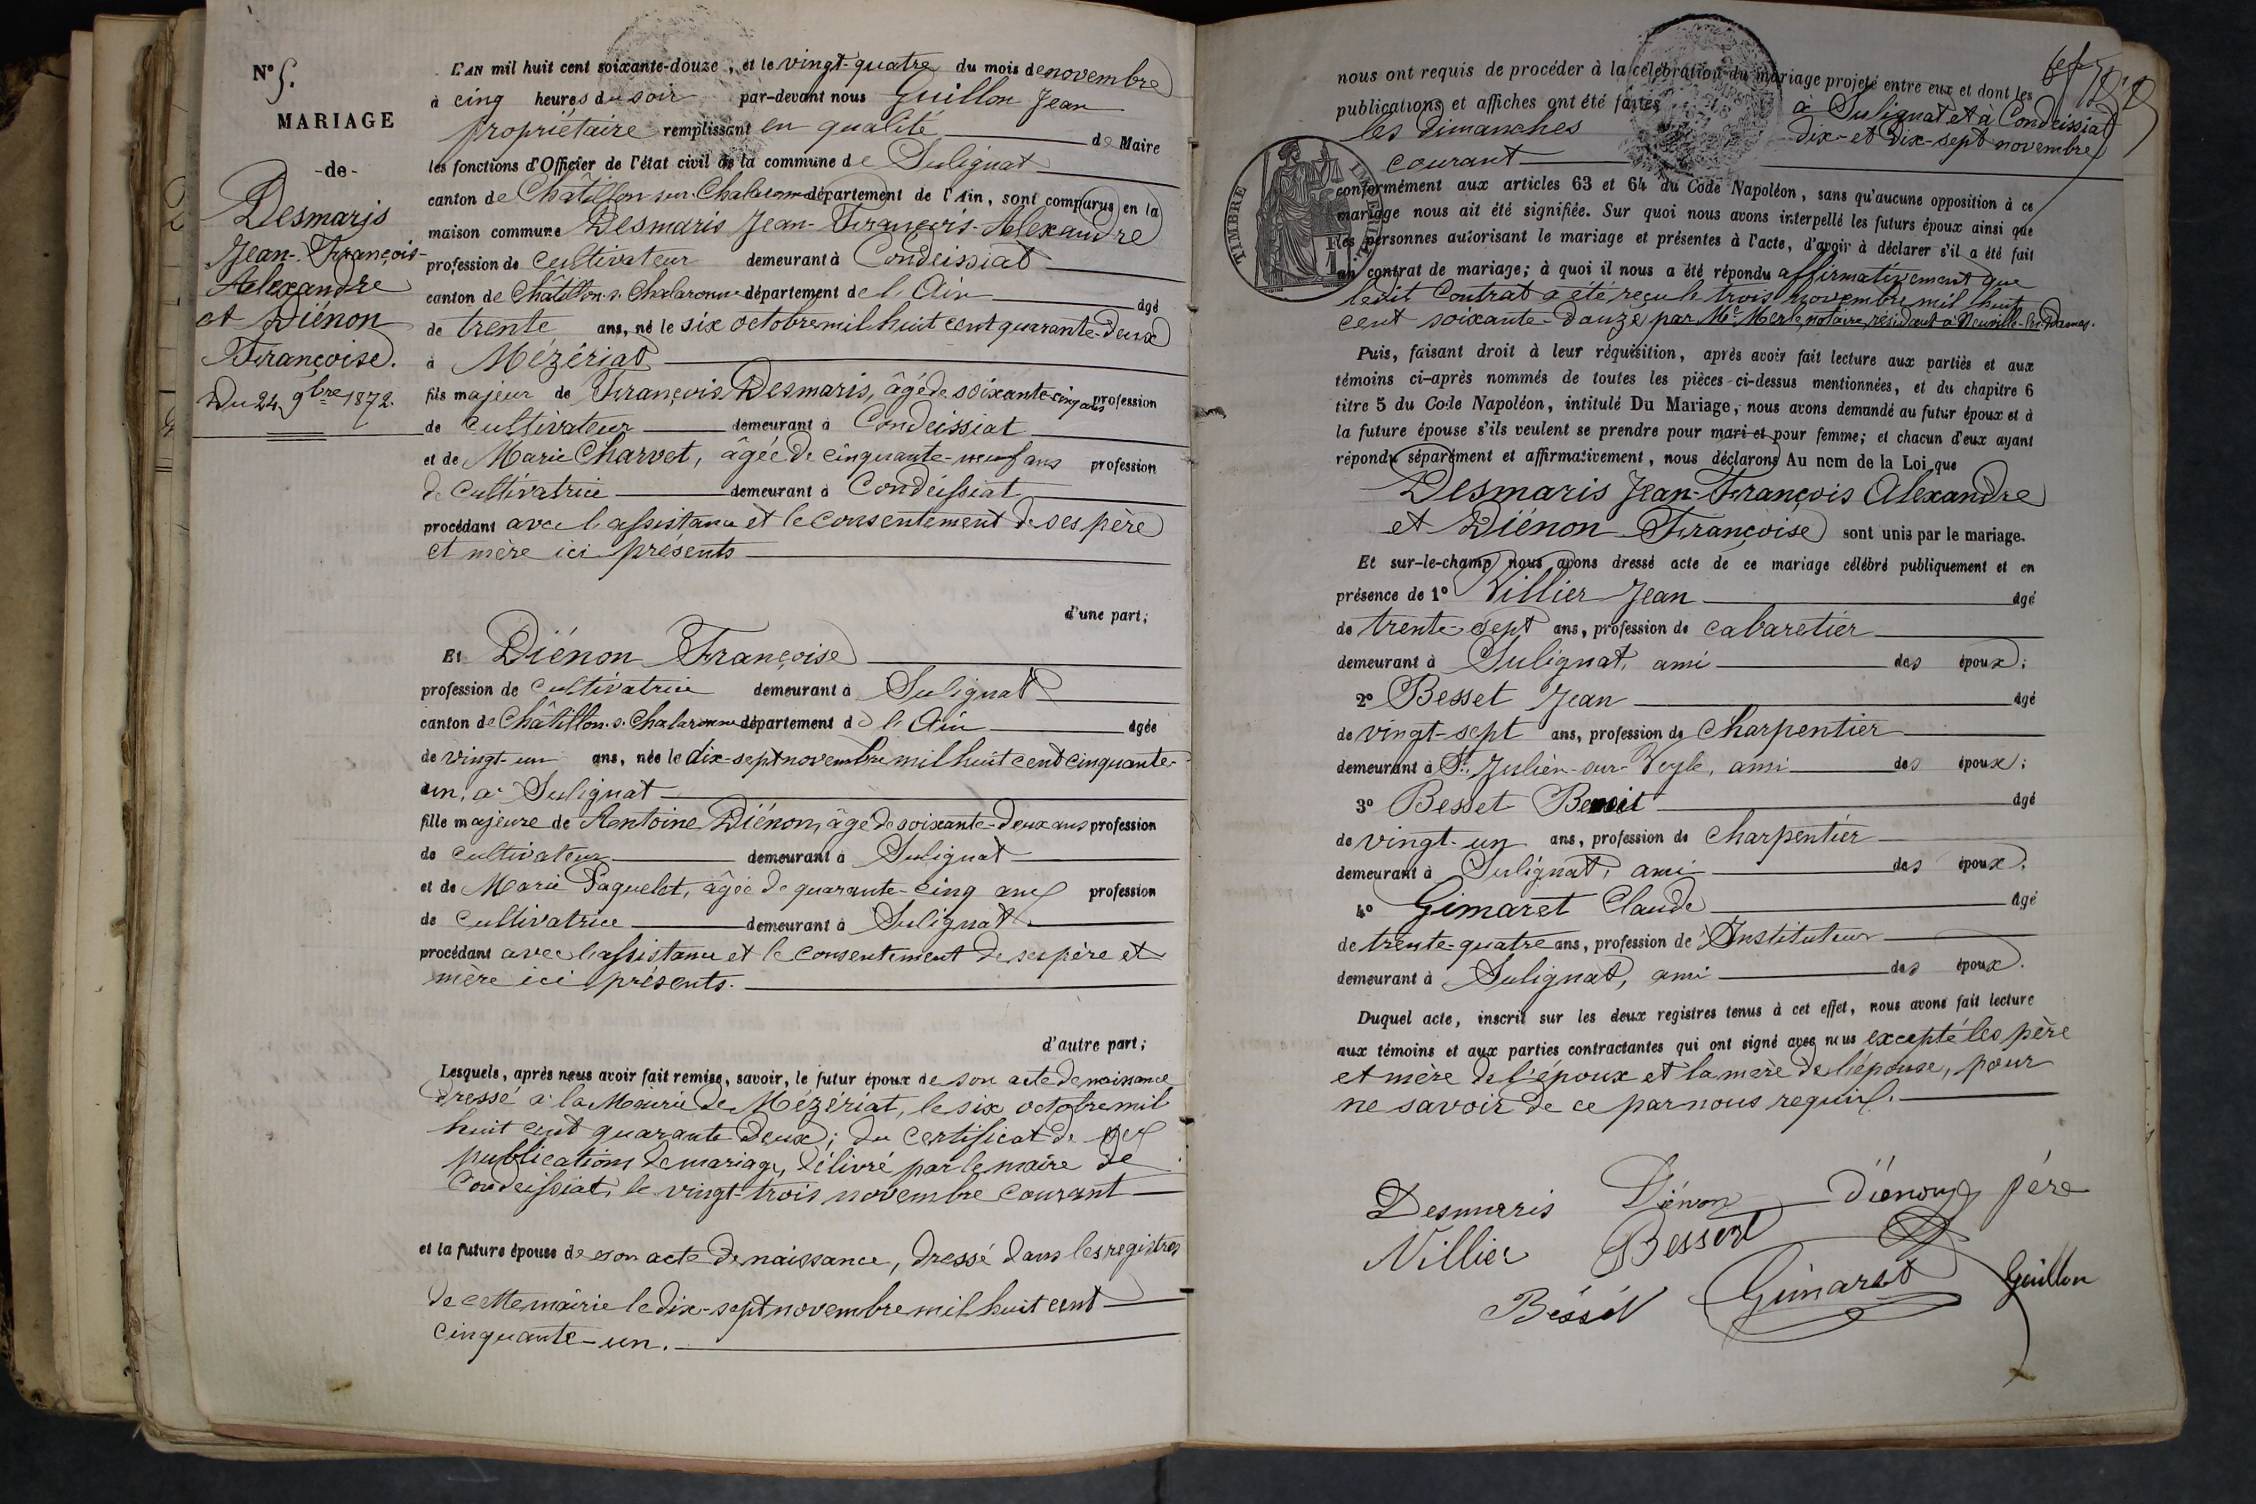 N° 5.
MARIAGE
-de-
Desmaris
Jean-François-
Alexandre
et Diénon
Françoise.
Du 24 9bre 1872.
L'AN mil huit cent soixante-douze, et le vingt-quatre du mois de novembre
à cinq heures du soir par-devant nous Guillon Jean
propriétaire remplissant en qualité de Maire
les fonctions d'Officier de l'état civil de la commune de Sulignat
canton de Châtillon sur Chalaronne département de l'Ain, sont comparus en la
maison commune Desmaris Jean-François-Alexandre
profession de cultivateur demeurant à Condeissiat
canton de Châtillon s. Chalaronne département de l'Ain âgé
de trente ans, né le six octobre mil huit cent quarante-deux
à Mézériat
fils majeur de François Desmaris, âgé de soixante-cinq ans profession
de cultivateur demeurant à Condeissiat
et de Marie Charvet, âgée de cinquante-neuf ans profession
de cultivatrice demeurant à Condeissiat
procédant avec l'assistance et le consentement de ses père
et mère ici présents
d'une part;
Et Diénon Françoise
profession de cultivatrice demeurant à Sulignat
canton de Châtillon s. Chalaronne département de l'Ain âgée
de vingt-un ans, née le dix-sept novembre mil huit cent cinquante-
un, à Sulignat
fille majeure de Antoine Diénon, âgé de soixante-deux ans profession
de cultivateur demeurant à Sulignat
et de Marie Paquelet, âgée de quarante-cinq ans profession
de cultivatrice demeurant à Sulignat
procédant avec l'assistance et le consentement de ses père et
mère ici présents.
d'autre part;
Lesquels, après nous avoir fait remise, savoir, le futur époux de son acte de naissance
dressé à la Mairie de Mézériat, le six octobre mil
huit cent quarante deux; du certificat de
publications de mariage, délivré par le maire de
Condeissiat, le vingt-trois novembre courant
et la future épouse de son acte de naissance, dressé dans les registres
de cette mairie le dix-sept novembre mil huit cent
cinquante-un.
nous ont requis de procéder à la célébration du mariage projeté entre eux et dont les
publications et affiches ont été faites à Sulignat et à Condeissiat
les dimanches dix et dix-sept novembre
courant
TIMBRE
conformément aux articles 63 et 64 du Code Napoléon, sans qu'aucune opposition à ce
mariage nous ait été signifiée. Sur quoi nous avons interpellé les futurs époux ainsi que
les personnes autorisant le mariage et présentes à l'acte, d'avoir à déclarer s'il a été fait
un contrat de mariage; à quoi il nous a été répondu affirmativement que
ledit Contrat a été reçu le trois novembre mil huit
cent soixante-douze par Me Merle, notaire, résidant à Neuville-les-Dames.
Puis, faisant droit à leur réquisition, après avoir fait lecture aux parties et aux
témoins ci-après nommés de toutes les pièces ci-dessus mentionnées, et du chapitre 6
titre 5 du Code Napoléon, intitulé Du Mariage, nous avons demandé au futur époux et à
la future épouse s'ils veulent se prendre pour mari et pour femme; et chacun d'eux ayant
répondu séparément et affirmativement, nous déclarons Au nom de la Loi que
Desmaris Jean-François Alexandre
et Diénon Françoise sont unis par le mariage.
Et sur-le-champ nous avons dressé acte de ce mariage célébré publiquement et en
présence de 1° Villier Jean âgé
de trente-sept ans, profession de cabaretier
demeurant à Sulignat, ami des époux;
2° Besset Jean âgé
de vingt-sept ans, profession de charpentier
demeurant à St. Julien-sur-Veyle, ami des époux;
3° Besset Benoit âgé
de vingt-un ans, profession de charpentier
demeurant à Sulignat, ami des époux;
4° Gimaret Claude âgé
de trente-quatre ans, profession de Instituteur
demeurant à Sulignat, ami des époux.
Duquel acte, inscrit sur les deux registres tenus à cet effet, nous avons fait lecture
aux témoins et aux parties contractantes qui ont signé avec nous excepté les père
et mère de l'époux et la mère de l'épouse, pour
ne savoir de ce par nous requis.
Desmaris Diénon Diénon père
Villier Besset
Bésset Gimaret Guillon